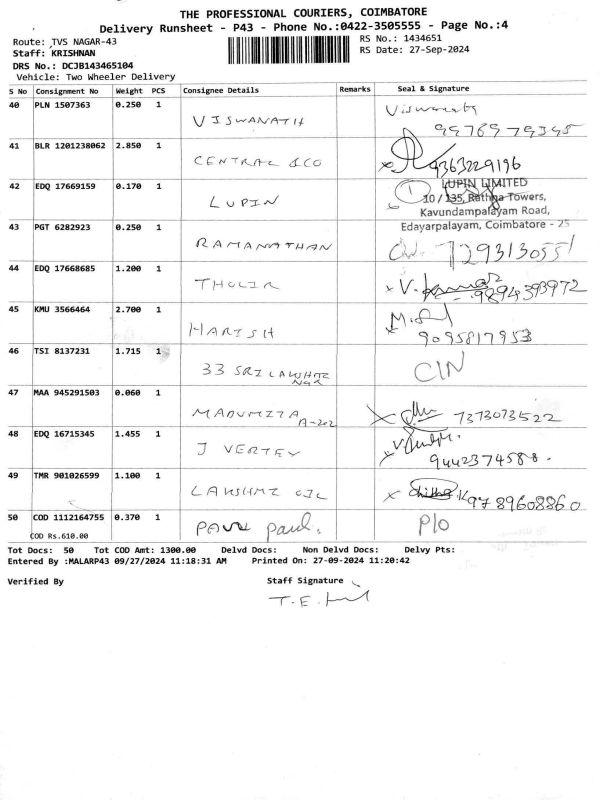 THE PROFESSIONAL COURIERS, COIMBATORE
Delivery Runsheet - P43 - Phone No.:0422-3505555 - Page No.:4
Route: TVS NAGAR-43 RS No.: 1434651
Staff: KRISHNAN RS Date: 27-Sep-2024
DRS No.: DCJB143465104
Vehicle: Two Wheeler Delivery
S No Consignment No Weight PCS Consignee Details Remarks Seal & Signature
40 PLN 1507363 0.250 1
VISWANATH
9976979345
41 BLR 1201238062 2.850 1
CENTRAL & CO 9363229196
42 EDQ 17669159 0.170 1 LUPIN LIMITED
LUPIN 1 10 / 135, Rathna Towers,
Kavundampalayam Road,
Edayarpalayam, Coimbatore - 25
43 PGT 6282923 0.250 1
RAMANATHAN 7293130551
44 EDQ 17668685 1.200 1
9894393972
45 KMU 3566464 2.700 1
HARISH 9095817953
46 TSI 8137231 1.715 1
33 SRI LAKSHMI NGR
47 MAA 945291503 0.060 1
MADUMITA A-202 7373073522
48 EDQ 16715345 1.455 1
J VERTEY 9442374588.
49 TMR 901026599 1.100 1
LAKSHMI OIL 9789608860
50 COD 1112164755 0.370 1
Paul P/O
COD Rs.610.00
Tot Docs: 50 Tot COD Amt: 1300.00 Delvd Docs: Non Delvd Docs: Delvy Pts:
Entered By :MALARP43 09/27/2024 11:18:31 AM Printed On: 27-09-2024 11:20:42
Verified By Staff Signature